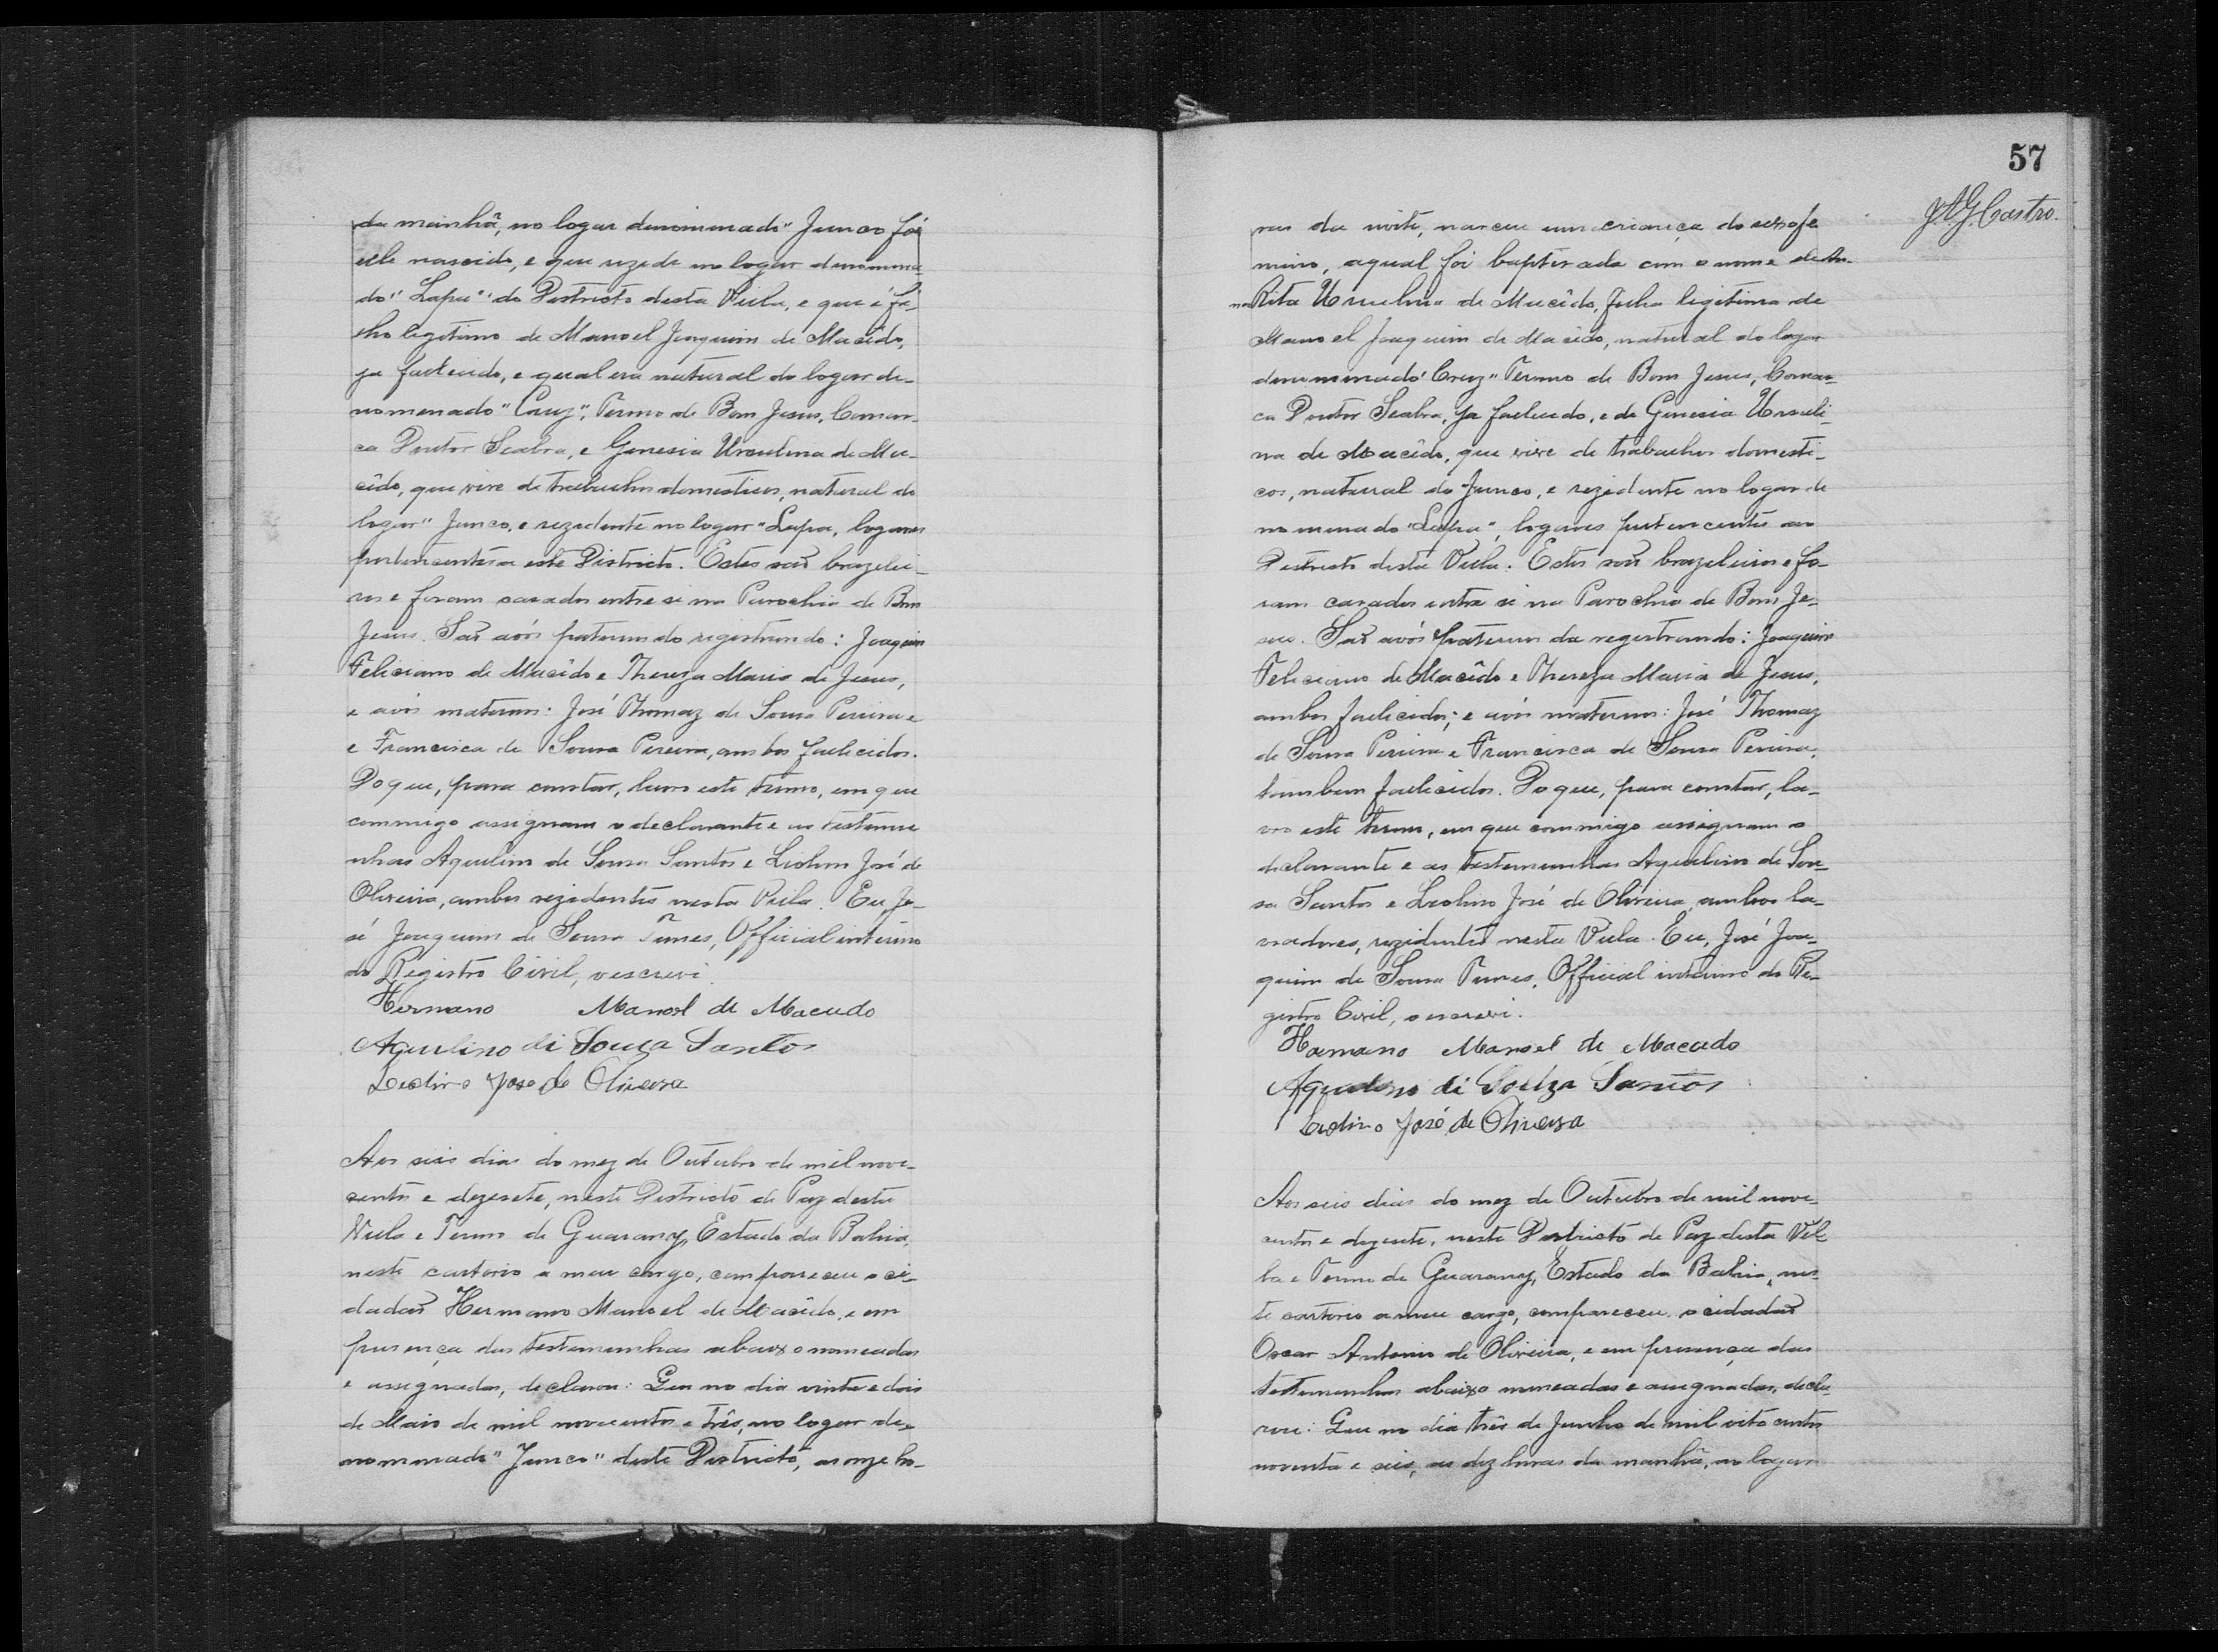 da manhã, no logar denominado "Junco foi
elle nascido, e que rezede no logar denomina
do "Lapa" do Districto desta Villa, e que é fi-
lho legitimo de Manoel Joaquim de Macêdo,
ja fallecido, e qual era natural do logar de-
nomenado "Cruz", Termo de Bom Jesus, Comar-
ca Doutor Seabra, e Genesia Ursulina de Ma-
cêdo, que vive de trabalhos domesticos, natural do
logar "Junco, e rezedente no logar "Lapa, logares
pertencentes a este Districto. Estes são brazilei-
ros e foram casados entre si na Parochia de Bom
Jesus. São avós paternos do registrando: Joaquim
Feliciano de Macêdo e Thereza Maria de Jesus,
e avós maternos: José Thomaz de Sousa Pereira e
e Francisca de Sousa Pereira, ambos fallecidos.
Do que, para constar, lavro este termo, em que
commigo assignam o declarante e as testemu
nhas Aquilino de Sousa Santos e Liolino José de
Oliveira, ambos rezedentes nesta Villa. Eu, Jo-
sé Joaquim de Sousa Tunes, Official interino
do Registro Civil, o escrevi.
Hermano Manoel de Macedo
Aquilino di Souza Santos
Leolino Jose de Oliveira
Aos seis dias do mez de Outubro de mil nove-
centos e dezesete, neste Districto de Paz desta
Villa e Termo de Guarany, Estado da Bahia,
neste cartorio a meu cargo, compareceu o ci-
dadão Hermano Manoel de Macêdo, e em
presença das testemunhas abaixo nomeadas
e assignadas, declarou: Que no dia vinte e dois
de Maio de mil novecentos e três, no logar de-
nominado "Junco" deste Districto, as onze ho-
57
J. A. G. Castro.
ras da noite, nasceu um criança do sexo fe
minino, a qual foi baptisada com o nome de An-
na Rita Ursulina de Macêdo, filha legitima de
Manoel Joaquim de Macêdo, natural do logar
denominado "Cruz" Termo de Bom Jesus, Comar-
ca Doutor Seabra, ja fallecido, e de Genesia Ursuli-
na de Macêdo, que vive de trabalhos domesti-
cos, natural do Junco, e rezedente no logar de
nomenado "Lapa", logares pertencentes ao
Districto desta Villa. Estes são brazileiros e fo-
ram casados entre si na Parochia de Bom Je-
sus. São avós paternos da registrando: Joaquim
Feliciano de Macêdo e Thereza Maria de Jesus,
ambos fallecidos; e avós maternos: José Thomaz
de Sousa Pereira e Francisca de Sousa Pereira,
tambem fallecidos. Do que, para constar, la-
vro este termo, em que commigo assignam o
declarante e as testemunhas Aquilino de Sou-
sa Santos e Liolino José de Oliveira, ambos la-
vradores, rezidentes nesta Villa. Eu, José Joa-
quim de Sousa Tunes, Official interino do Re-
gistro Civil, o escrevi.
Hermano Manoel de Macedo
Aquilino di Souza Santos
Leolino José de Oliveira
Aos seis dias do mez de Outubro de mil nove-
centos e dezesete, neste Districto de Paz desta Vil-
la e Termo de Guarany, Estado da Bahia, nes-
te cartorio a meu cargo, compareceu o cidadão
Oscar Antonio de Oliveira, e em presença das
testemunhas abaixo nomeadas e assignadas, decla-
rou: Que no dia três de Junho de mil oito centos
noventa e seis, as dez horas da manhã, no logar